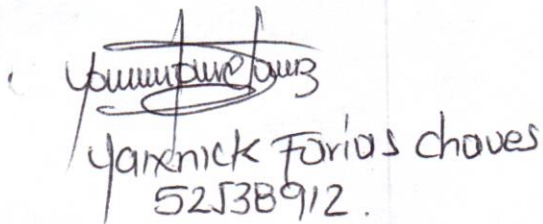 Yanxnick Farias chaves
52538912.